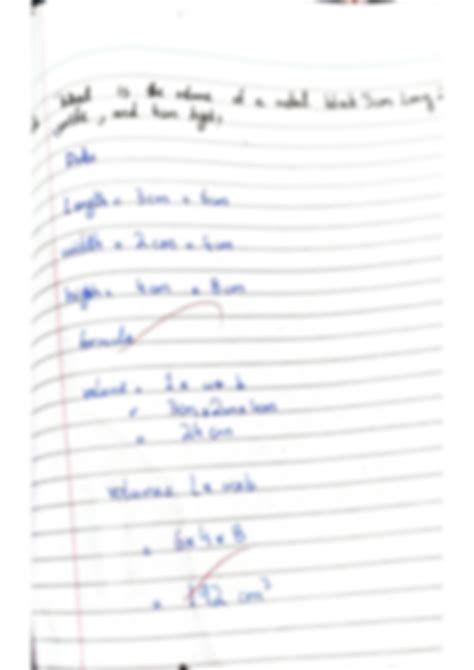 What is the volume of a metal block 3cm Long
, and 4cm high,
Data
Length = 3cm = 6cm
width = 2cm = 4cm
high = 4cm = 8cm
formula
volume =
3cm × 2cm × 4cm
= 24 cm
= 6 × 4 × 8
= 192 cm³